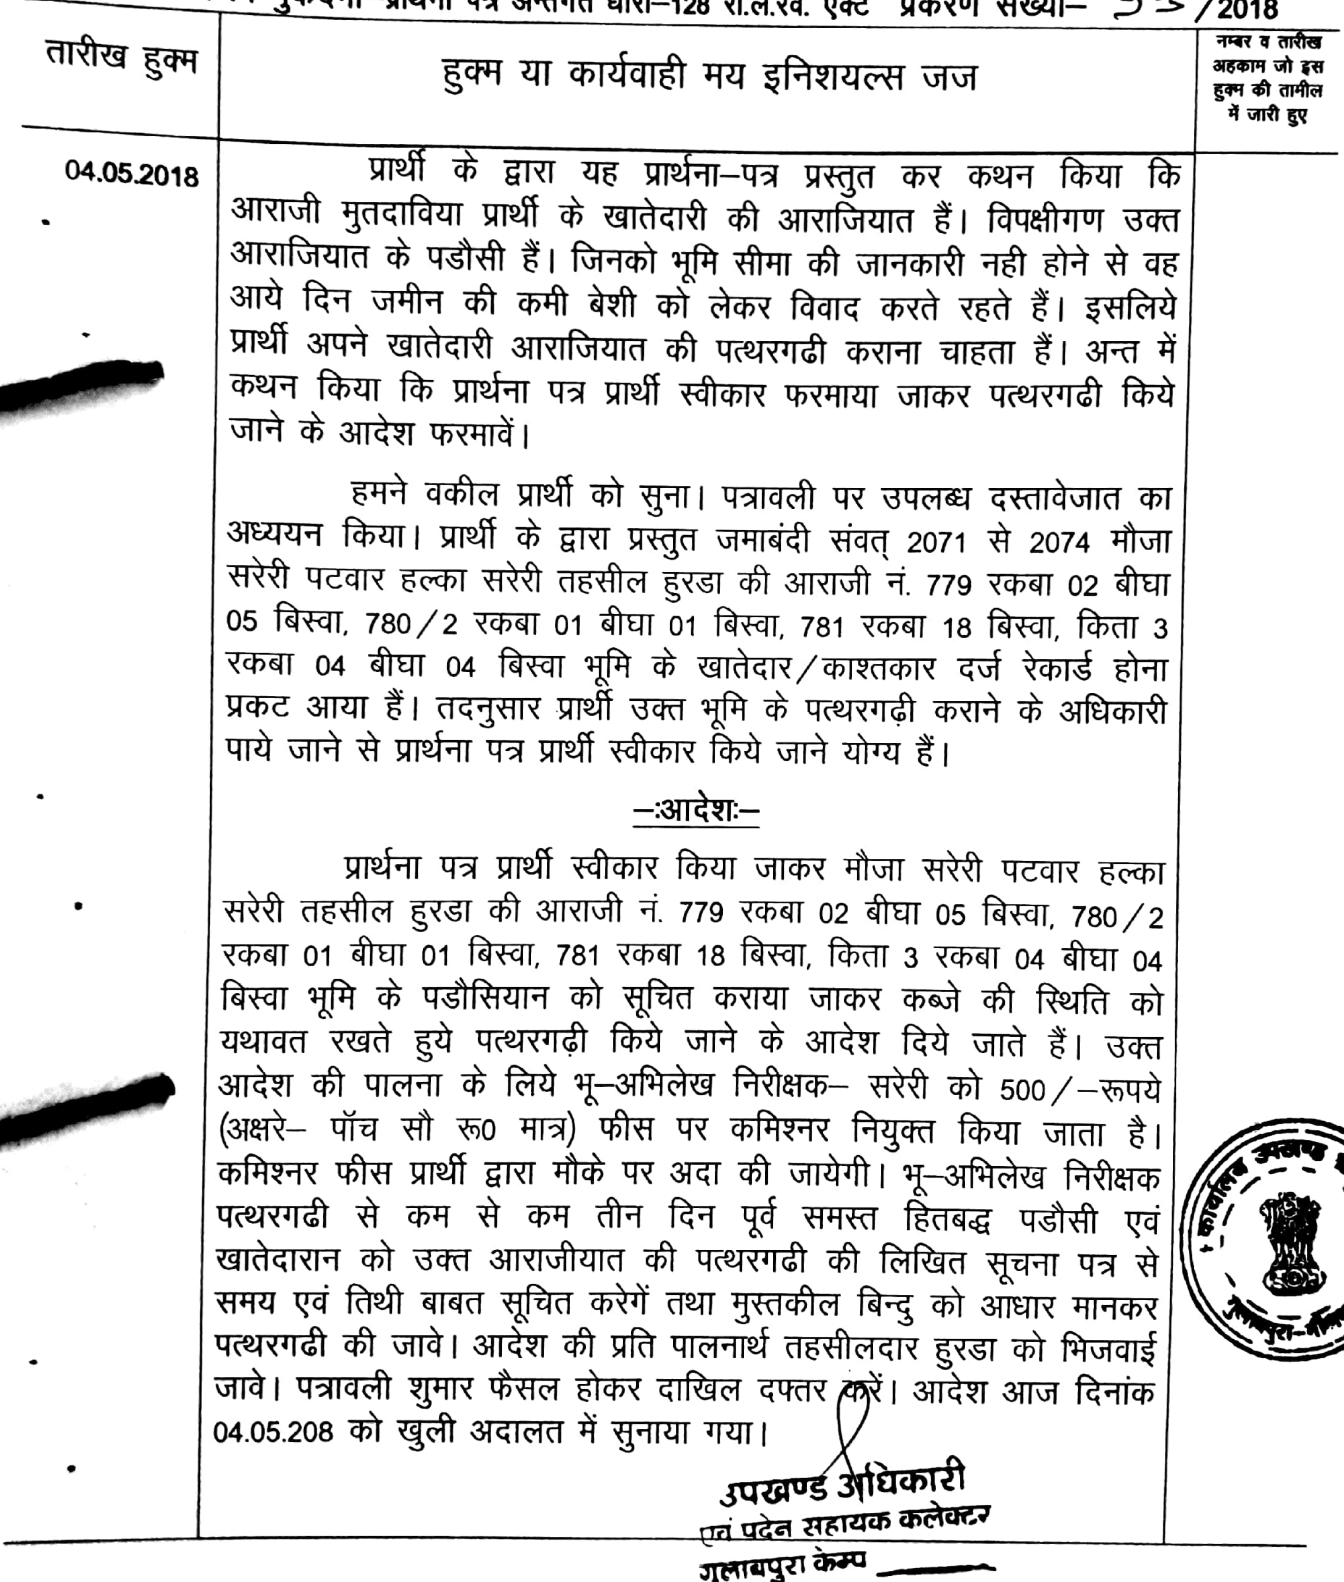 प्रार्थना पत्र अन्तर्गत धारा–128 रा.ले.रेवे. एक्ट प्रकरण संख्या– /2018
तारीख हुक्म
हुक्म या कार्यवाही मय इनिशयल्स जज
नम्बर व तारीख
अहकाम जो इस
हुक्म की तामील
में जारी हुए
04.05.2018
प्रार्थी के द्वारा यह प्रार्थना–पत्र प्रस्तुत कर कथन किया कि
आराजी मुतदाविया प्रार्थी के खातेदारी की आराजियात हैं। विपक्षीगण उक्त
आराजियात के पडौसी हैं। जिनको भूमि सीमा की जानकारी नही होने से वह
आये दिन जमीन की कमी बेशी को लेकर विवाद करते रहते हैं। इसलिये
प्रार्थी अपने खातेदारी आराजियात की पत्थरगढी कराना चाहता हैं। अन्त में
कथन किया कि प्रार्थना पत्र प्रार्थी स्वीकार फरमाया जाकर पत्थरगढी किये
जाने के आदेश फरमावें।
हमने वकील प्रार्थी को सुना। पत्रावली पर उपलब्ध दस्तावेजात का
अध्ययन किया। प्रार्थी के द्वारा प्रस्तुत जमाबंदी संवत् 2071 से 2074 मौजा
सरेरी पटवार हल्का सरेरी तहसील हुरडा की आराजी नं. 779 रकबा 02 बीघा
05 बिस्वा, 780/2 रकबा 01 बीघा 01 बिस्वा, 781 रकबा 18 बिस्वा, किता 3
रकबा 04 बीघा 04 बिस्वा भूमि के खातेदार/काश्तकार दर्ज रेकार्ड होना
प्रकट आया हैं। तदनुसार प्रार्थी उक्त भूमि के पत्थरगढ़ी कराने के अधिकारी
पाये जाने से प्रार्थना पत्र प्रार्थी स्वीकार किये जाने योग्य हैं।
–:आदेश:–
प्रार्थना पत्र प्रार्थी स्वीकार किया जाकर मौजा सरेरी पटवार हल्का
सरेरी तहसील हुरडा की आराजी नं. 779 रकबा 02 बीघा 05 बिस्वा, 780/2
रकबा 01 बीघा 01 बिस्वा, 781 रकबा 18 बिस्वा, किता 3 रकबा 04 बीघा 04
बिस्वा भूमि के पडौसियान को सूचित कराया जाकर कब्जे की स्थिति को
यथावत रखते हुये पत्थरगढ़ी किये जाने के आदेश दिये जाते हैं। उक्त
आदेश की पालना के लिये भू–अभिलेख निरीक्षक– सरेरी को 500/–रूपये
(अक्षरे– पॉच सौ रू0 मात्र) फीस पर कमिश्नर नियुक्त किया जाता है।
कमिश्नर फीस प्रार्थी द्वारा मौके पर अदा की जायेगी। भू–अभिलेख निरीक्षक
पत्थरगढी से कम से कम तीन दिन पूर्व समस्त हितबद्ध पडौसी एवं
खातेदारान को उक्त आराजीयात की पत्थरगढी की लिखित सूचना पत्र से
समय एवं तिथी बाबत सूचित करेगें तथा मुस्तकील बिन्दु को आधार मानकर
पत्थरगढी की जावे। आदेश की प्रति पालनार्थ तहसीलदार हुरडा को भिजवाई
जावे। पत्रावली शुमार फैसल होकर दाखिल दफ्तर करें। आदेश आज दिनांक
04.05.208 को खुली अदालत में सुनाया गया।
कार्यालय उपखण्ड
गुलाबपुरा–
उपखण्ड अधिकारी
एवं पदेन सहायक कलेक्टर
गुलाबपुरा केम्प